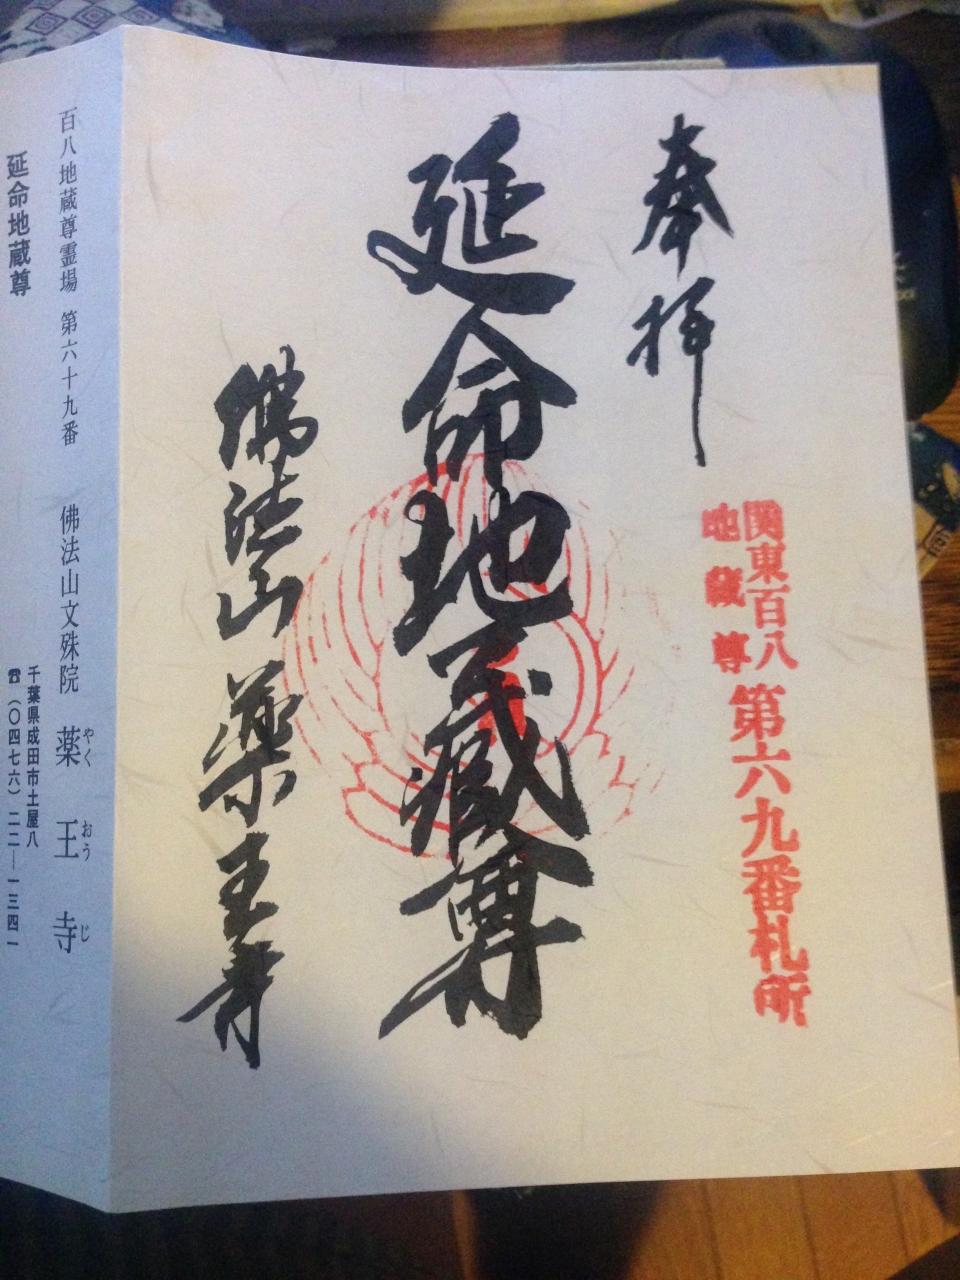 奉拝
関東百八
地蔵尊
第六九番札所
延命地蔵尊
佛法山
薬王寺
百八地蔵尊霊場 第六十九番 佛法山文殊院 薬王寺
やく おう じ
千葉県成田市土屋八
☎(〇四七六)二二―一三四一
延命地蔵尊